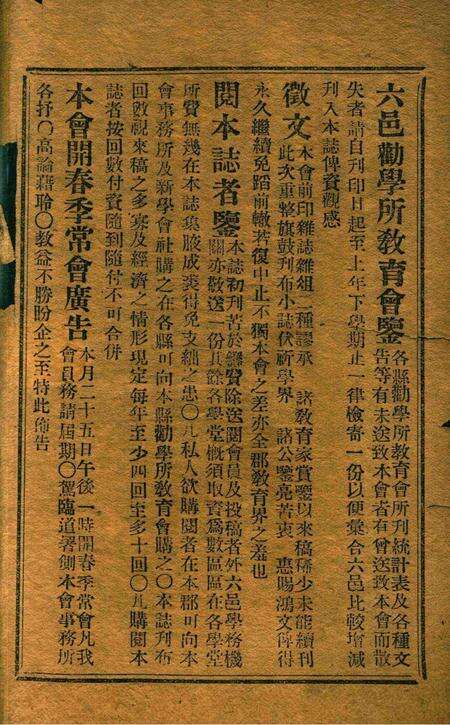 六邑勸學所教育會鑒各縣勸學所教育會所刊統計表及各種文
告等有未送致本會者有曾送致本會而散
失者請自刊印日起至上年下學期止一律檢寄一份以便彙合六邑比較增減
刊入本誌俾資觀感
徵文本會前印雜誌雜俎二種謬承 諸教育家賞鑒以來稿稀少未能續刊
此次重整旗鼓刊布小誌伏祈學界 諸公鑒亮苦衷 惠賜鴻文俾得
永久繼續免蹈前轍若復中止不獨本會之羞亦全郡教育界之羞也
閱本誌者鑒本誌初刊苦於經費除送閱會員及投稿者外六邑學務機
關亦敬送一份其餘各學堂概須取資爲數區區在各學堂
所費無幾在本誌集腋成裘得免支絀之患〇凡私人欲購閱者在本郡可向本
會事務所及新學會社購之在各縣可向本縣勸學所教育會購之〇本誌刊布
回數視來稿之多寡及經濟之情形現定每年至少四回至多十回〇凡購閱本
誌者按回數付資隨到隨付不可合併
本會開春季常會廣告本月二十五日午後一時開春季常會凡我
會員務請屆期〇駕臨道署側本會事務所
各抒〇高論藉聆〇教益不勝盼企之至特此佈告